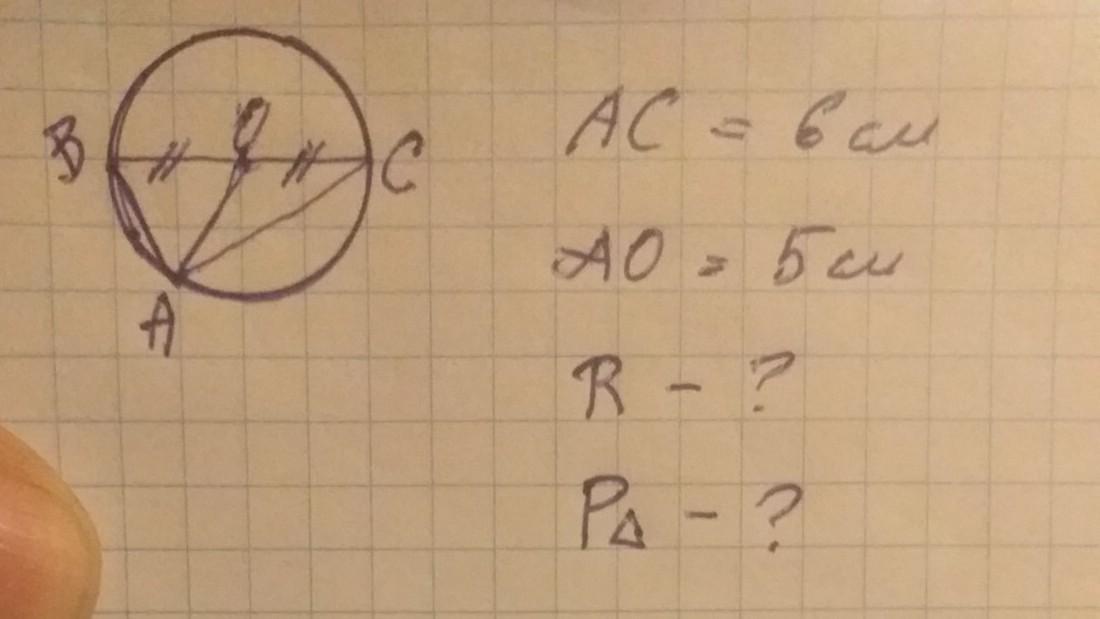 B O C
A
AC = 6 см
AO = 5 см
R - ?
P△ - ?